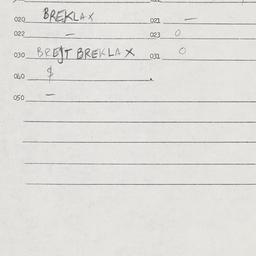 020 BREKLAX 021 —
022 — 023 O
030 BREJT BREKLAX 031 O
060 $
050 —